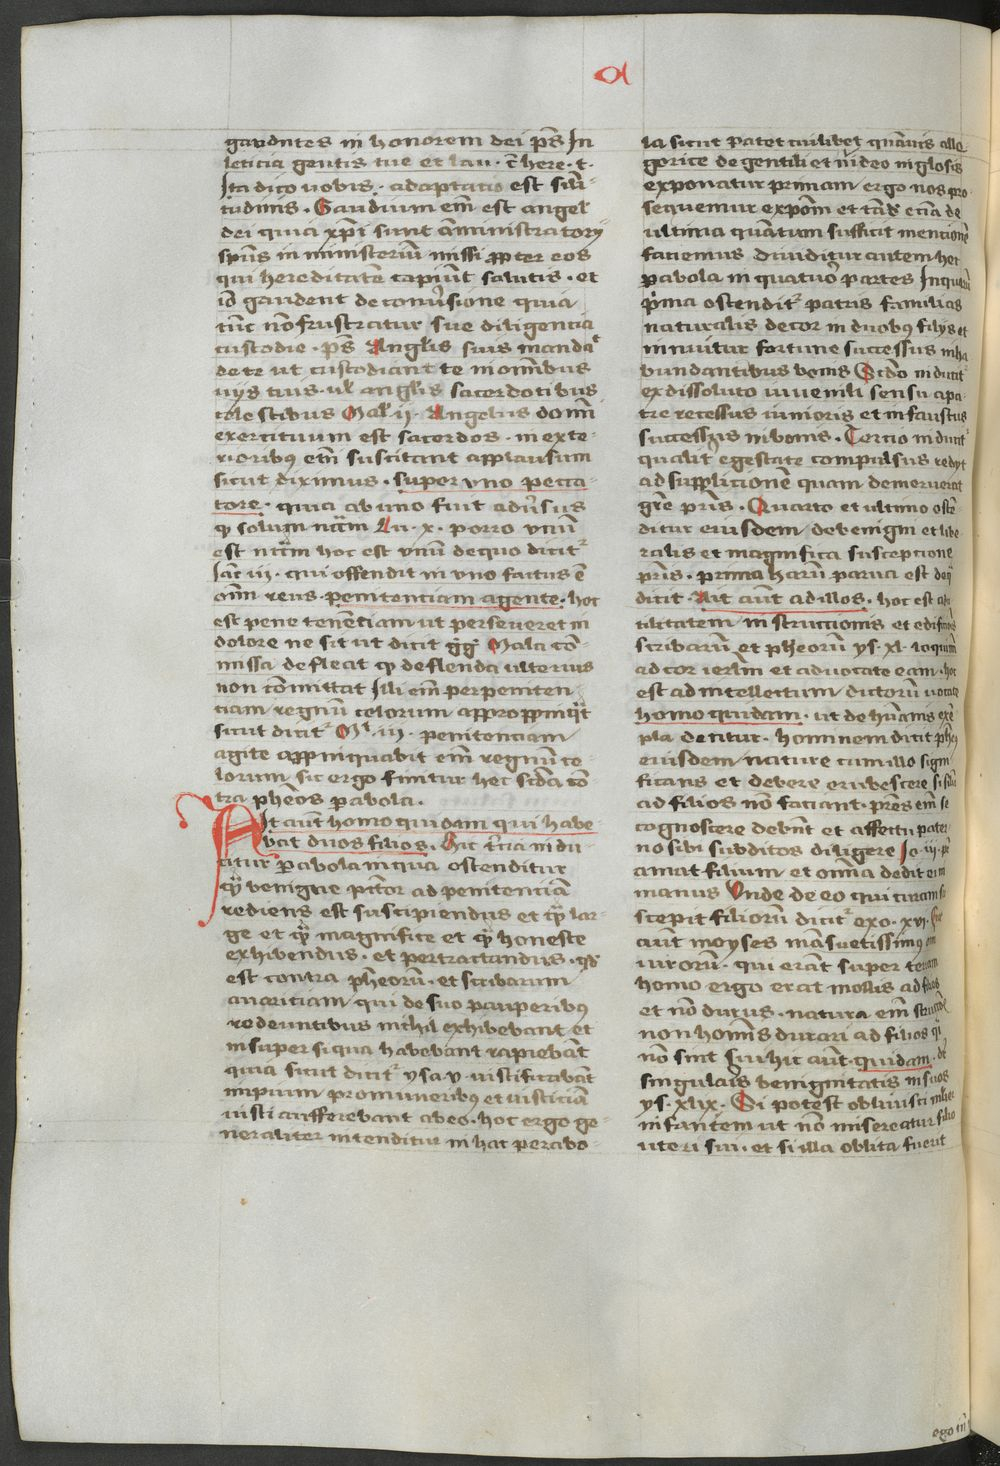 gaudntes in honorem dei ps̄ In
leticia gentis tue et lau · c̄ here · t ·
Ita dico uobis · adaptatio est sili-
tudinis · Gaudium em̄ est angel
dei quia xp̄i sunt amministratorij
spūs in ministeriū missi ꝓpter eos
qui hereditatem capiūt salutis · et
iō gaudent de conūsione quia
tūc nō frustratur sue diligencia
custodie · ps̄ Anglis suis manda
de te ut custodiant te in omnibus
uijs tuis · ul anglis sacerdotibus
celestibus Mal ij · Angelus domī
exercituum est sacerdos · in exte-
rioribꝰ em̄ suscitant applausum
sicut diximus · super vno pecca-
tore · quia ab uno fuit adūsus
ꝙ solum nccm̄ Lu · x · porro vnū
est nccm̄ hoc est vnū de quo dicit
Iac iii · qui offendit in vno factus ē
om̄ reus · penitentiam agente · hoc
est pene tenēciam ut perseueret in
dolore ne sit ut dicit gg Mala cō-
missa defleat ꝙ deflenda ulterius
non cōmittat Illi em̄ per peniten
ciam regnū celorum appropinqūt
sicut dicit Mt iii · penitenciam
agite appinquabit em̄ regnū ce-
lorum · sic ergo finitur hec scda cō-
tra pheos pabola ·
Ait aūt homo quidam qui habe-
bat duos filios · Hic tercia indu-
citur parabola in qua ostenditur
qͣ benigne pctor ad penitenciā
rediens est suscipiendus et qͣ lar-
ge et qͣ magnifice et qͣ honeste
exhibendus · et pertractandus · qd
est contra pheorū · et scribarum
auariciam qui de suo pauperibꝰ
redeuntibus nichil exhibebant et
insuper si qua habebant rapiebāt
quia sicut dicit ysa · v · iustificabāt
impium pro muneribꝰ et iusticiā
iusti aufferebant ab eo · hoc ergo ge-
neraliter intenditur in hac perabo-
la sicut patet cuilibet quāuis alle-
gorice de gentili et iudeo in glosis
exponatur primam ergo nos pro-
sequemur expōm et tn̄d ecia de
ultima quātum sufficit mencionē
faciemus Diuiditur autem hec
pabola in quatuor partes In quarū
pͥma ostendit patris familias
naturalis decor in duobꝰ filijs et
innuitur fortune successus in ha
bundantibus bonis Scdo inducit
ex dissoluto iuuenili sensu a pa-
tre recessus iunioris et infaustus
successus in bonis · Tercio inducit
qualit egestate compulsus redyt
ad supplicionē quam demeruerat
gre pris · Quarto et ultimo ostē
ditur eiusdem de benigni et libe-
ralis et magnifica suscepcione
pris · prima harū parua est de q̄
dicit · Ait aūt ad illos · hoc est ad
utilitatem instruccionis et edificnois
scribarū et pheorū ys · xl · loquimī
ad cor ierlm̄ et aduocate eam · hoc
est ad intellectum dictorū uocate
homo quidam · ut de hūanis exē
pla detur · hominem dicit pheꝰ
eiusdem nature cum illo signi
ficans et debere erubescere si sili
ad filios nō faciant · pres em̄ se
cognoscere debnt et affectu pater
no sibi subditos diligere Io iij · pr
amat filium et omīa dedit ei in
manus Vnde de eo qui curam su
scepit filiorū dicit exo · xvi ·
aūt moyses māsuetissimꝰ om
uirorū · qui erāt super terram
homo ergo erat mollis ad filios
et nō durus · natura em̄
non hoīns durari ad filios qi
nō sint sui hic aūt · quidam · de
singularis benignitatis in suos
ys · xlix · Si potest obliuisci mulier
infantem ut nō misereatur filio
uteri sui · et si illa oblita fuerit
ego in